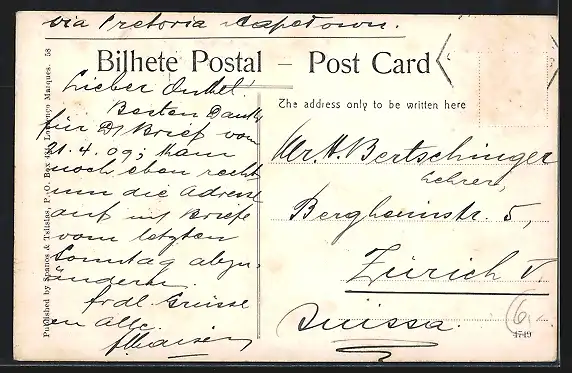 via Pretoria Capetown.
Bilhete Postal – Post Card
The address only to be written here
Lieber Onkel!
Besten Dank
für Dj Brief vom
21.4.09; kam
noch eben recht
um die Adresse
auf mj Briefe
vom letzten
Sonntag abzu-
ändern.
frdl. Grüsse
an Alle.
Mr. H. Bertschinger
Lehrer,
Bergheimstr. 5,
Zürich V.
Suissa.
6.-
4749
Published by Spanos & Tsitsias, P. O. Box 434, Lourenço Marques. 58